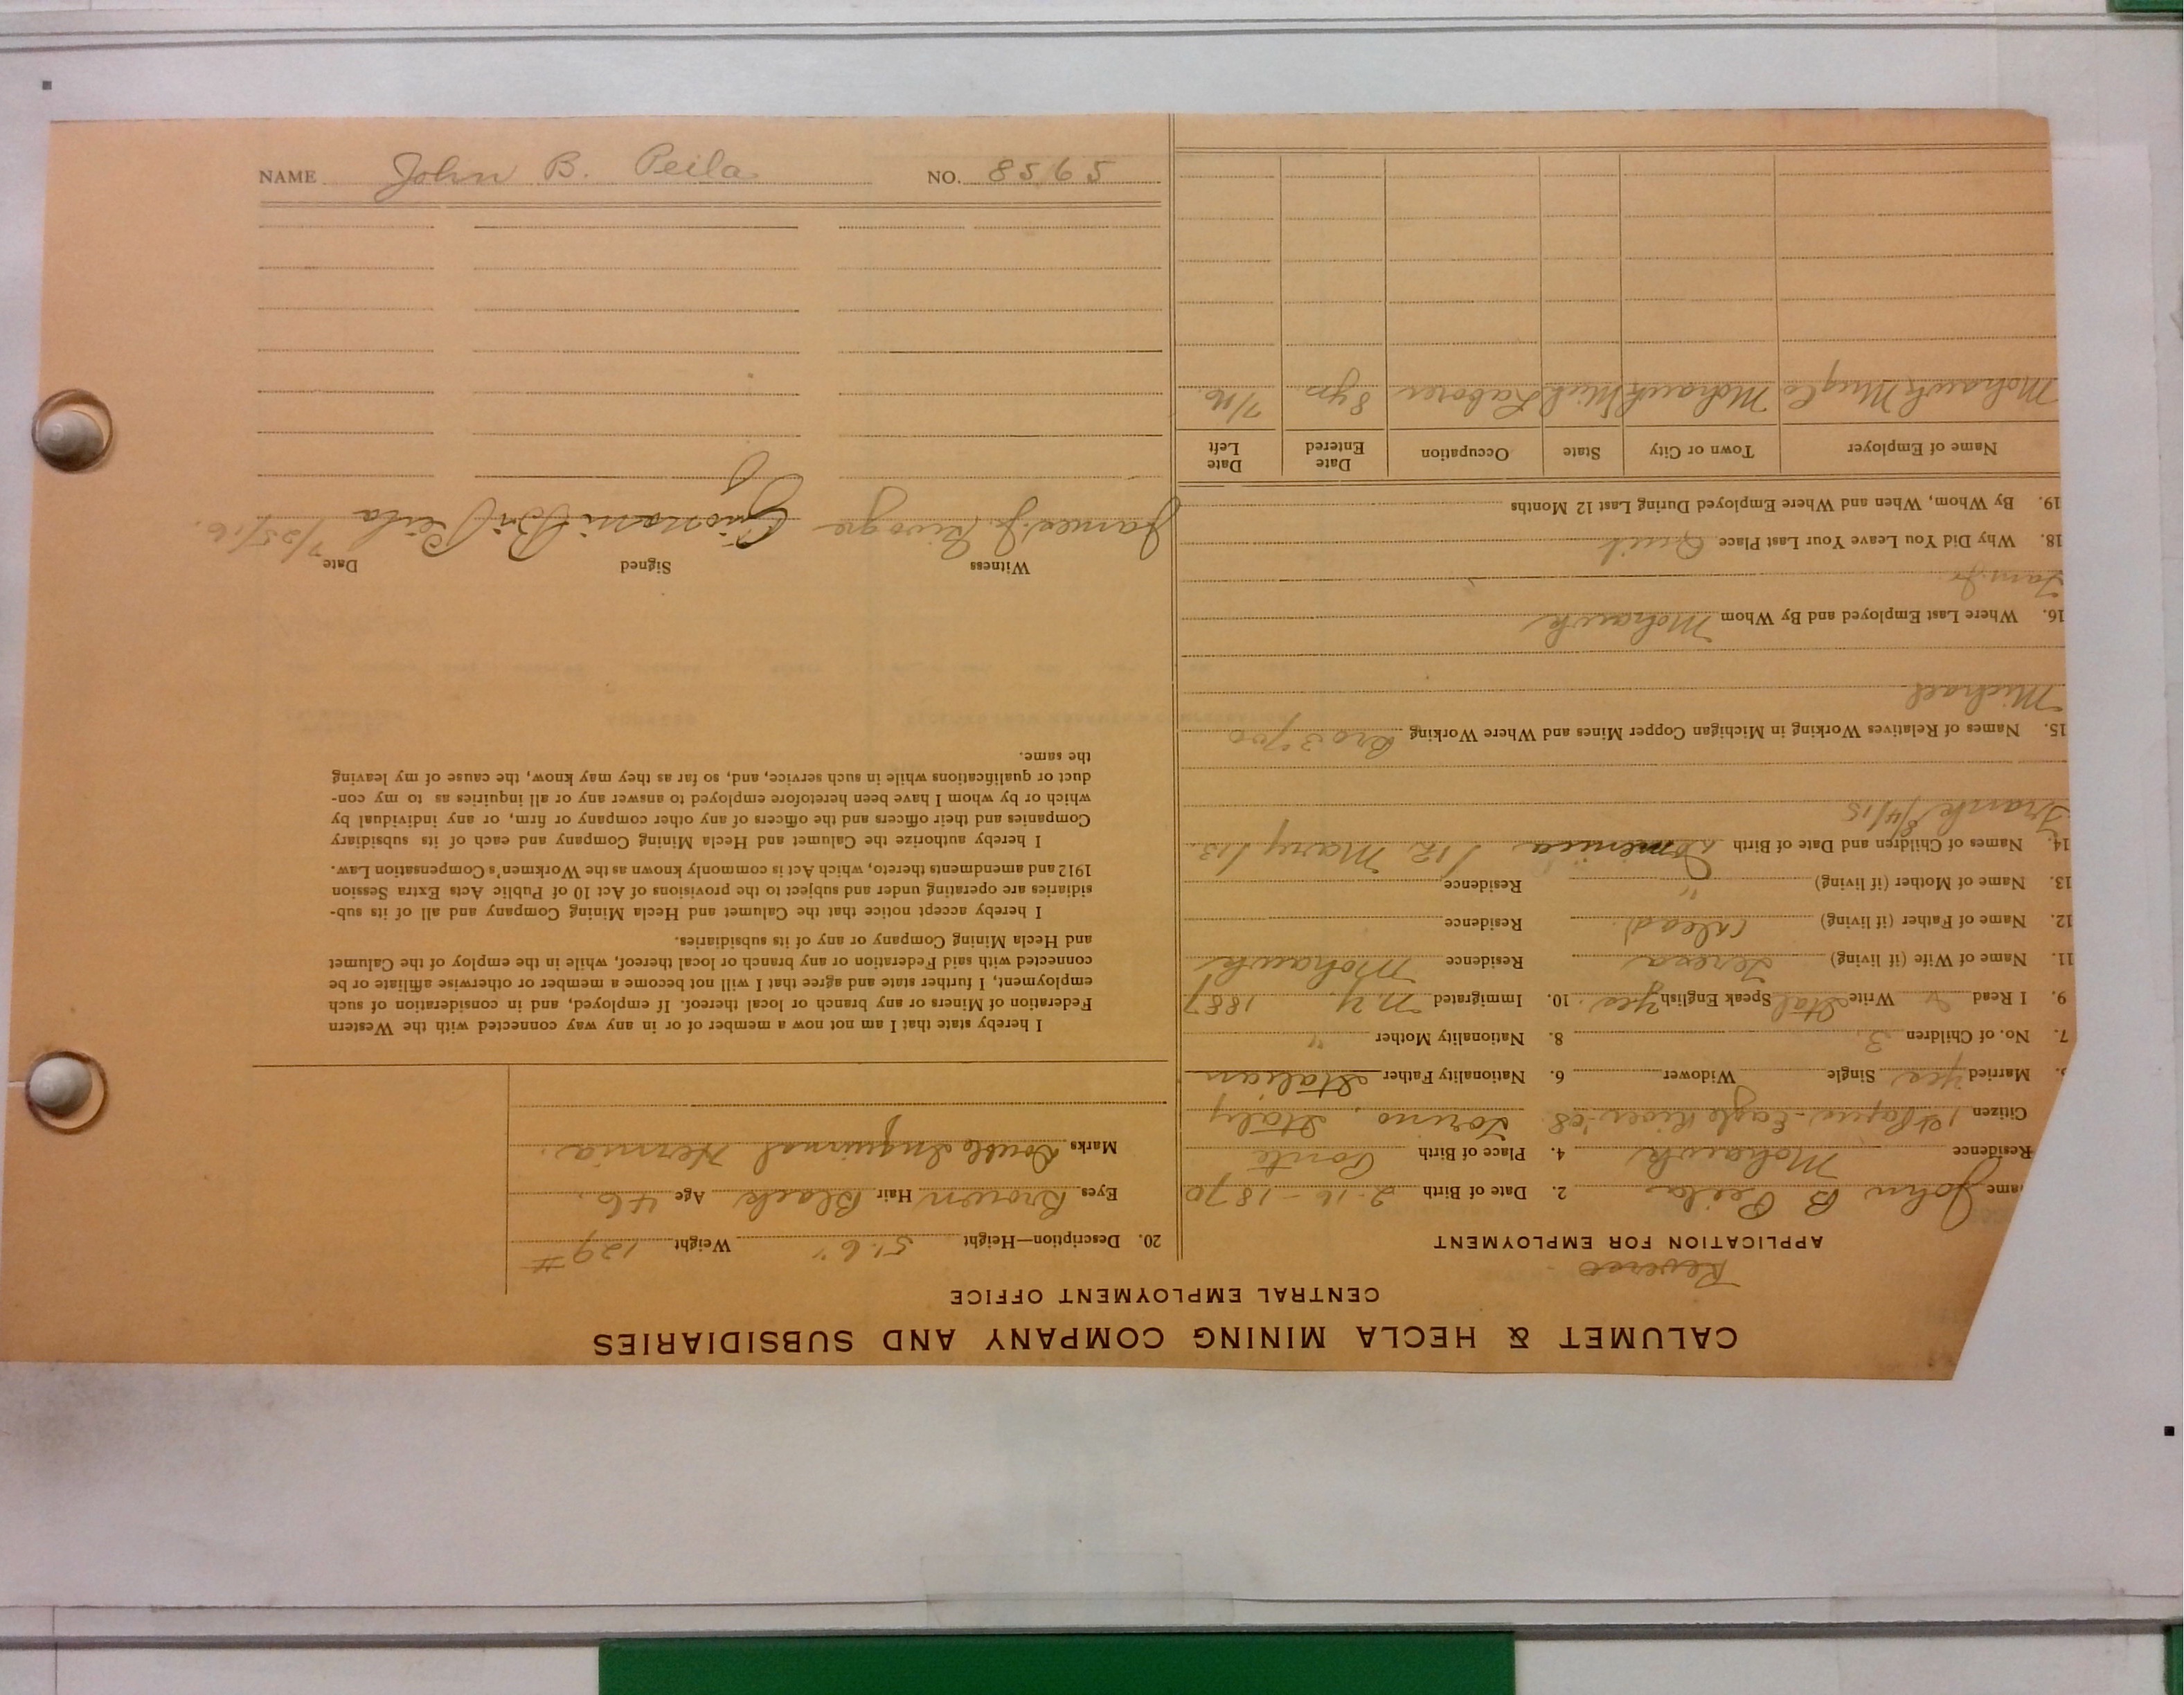 NAME John B. Peila NO. 8565
CALUMET & HECLA MINING COMPANY AND SUBSIDIARIES
CENTRAL EMPLOYMENT OFFICE
Reverse
APPLICATION FOR EMPLOYMENT
ame John B Peila 2. Date of Birth 2-16-1870
Residence Mohawk 4. Place of Birth Ponte
Citizen 1st Papers - Eagle River '08 Torino, Italy
Married Yes Single Widower 6. Nationality Father Italian
7. No. of Children 3. 8. Nationality Mother "
9. I Read " Write Ital Speak English Yes. 10. Immigrated N.Y. 1887
11. Name of Wife (if living) Teresa Residence Mohawk
12. Name of Father (if living) (dead) Residence
13. Name of Mother (if living) " Residence
14. Names of Children and Date of Birth Domenica /12, Mary /13.
Frank 8/4/15
15. Names of Relatives Working in Michigan Copper Mines and Where Working Bro
Michael
16. Where Last Employed and By Whom Mohawk
18. Why Did You Leave Your Last Place Quit
19. By Whom, When and Where Employed During Last 12 Months
Name of Employer Town or City State Occupation Date Entered Date Left
Mohawk Mng Co Mohawk Mich Laborer 8 yrs. 7/16.
20. Description—Height 5'.6" Weight 129#
Eyes Brown Hair Black Age 46.
Marks Double Inguinal Hernia.
I hereby state that I am not now a member of or in any way connected with the Western
Federation of Miners or any branch or local thereof. If employed, and in consideration of such
employment, I further state and agree that I will not become a member or otherwise affiliate or be
connected with said Federation or any branch or local thereof, while in the employ of the Calumet
and Hecla Mining Company or any of its subsidiaries.
I hereby accept notice that the Calumet and Hecla Mining Company and all of its sub-
sidiaries are operating under and subject to the provisions of Act 10 of Public Acts Extra Session
1912 and amendments thereto, which Act is commonly known as the Workmen's Compensation Law.
I hereby authorize the Calumet and Hecla Mining Company and each of its subsidiary
Companies and their officers and the officers of any other company or firm, or any individual by
which or by whom I have been heretofore employed to answer any or all inquiries as to my con-
duct or qualifications while in such service, and, so far as they may know, the cause of my leaving
the same.
Witness Signed Date
James J. Peila 7/25/16.